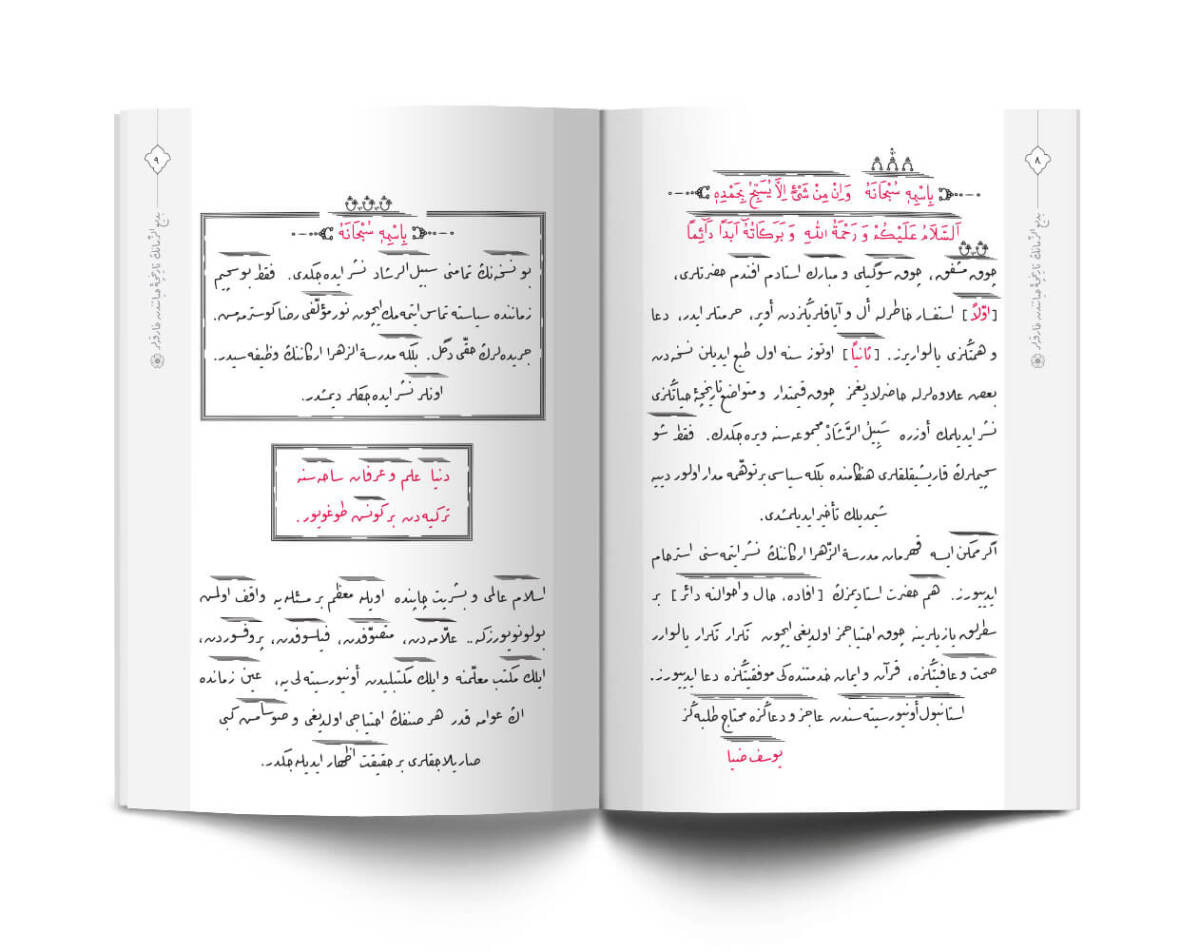 ٨
بِاسْمِهِ سُبْحَانَهُ وَاِنْ مِنْ شَيْءٍ اِلَّا يُسَبِّحُ بِحَمْدِهِ
اَلسَّلَامُ عَلَيْكُمْ وَ رَحْمَةُ اللهِ وَ بَرَكَاتُهُ اَبَدًا دَائِمًا
چوق مشفق، چوق سوگيلى و مبارك استادم افندم حضرتلرى،
[اوّلاً] استفسار خاطرله أل و آياقلريڭزدن أوپر، حرمتلر ايدر، دعا
و همتڭزى يالواريرز. [ثانياً] اوتوز سنه اول طبع ايديلن نسخه‌دن
بعض علاوه‌لرله حاضرلاديغمز چوق قيمتدار و متواضع تاريخچۀ حياتڭزى
نشر ايديلمك أوزره سَبِيلُ الرَّشَادْ مجموعه‌سنه ويره‌جكدك. فقط شو
سچيملرڭ قاريشيقلقلرى هنگامنده بلكه سياسى بر توهّمه مدار اولور دييه
شيمديلك تأخير ايديلمشدى.
اگر ممكن ايسه قهرمان مدرسة الزّهرا اركاننڭ نشر ايتمه‌سنى استرحام
ايدييورز. هم حضرت استاديمزڭ [افاده، حال و احوالنه دائر] بر
سطرلق يازيلرينه چوق احتياجمز اولديغى ايچون تكرار تكرار يالوارر
صحت و عافيتڭزه، قرآن و ايمان خدمتنده‌كى موفقيتڭزه دعا ايدييورز.
استانبول أونيورسيته‌سندن عاجز و دعاڭزه محتاج طلبه‌ڭز
يوسف ضيا
٩
بِاسْمِهِ سُبْحَانَهُ
بو نسخه‌نڭ تمامنى سبيل الرشاد نشر ايده‌جكدى. فقط بو سچيم
زماننده سياسته تماس ايتمه‌مك ايچون نور مؤلّفى رضا كوسترمه‌مش.
جريده‌لرڭ حقّى دگل. بلكه مدرسة الزهرا اركاننڭ وظيفه‌سيدر.
اونلر نشر ايده‌جكلر ديمشدر.
دنيا علم و عرفان ساحه‌سنه
تركيه‌دن بر كونش طوغويور.
اسلام عالمى و بشريت چاپنده اويله معظم بر مسئله‌يه واقف اولمش
بولونويورزكه.. علّامه‌دن، متصوّفدن، فيلسوفدن، پروفسوردن،
ايلك مكتب معلّمنه و ايلك مكتبليدن أونيورسيته‌لى‌يه، عين زمانده
اڭ عوامه قدر هر صنفڭ احتياجى اولديغى و صوسامش كبى
صاريلاجقلرى بر حقيقت اظهار ايديله‌جكدر.